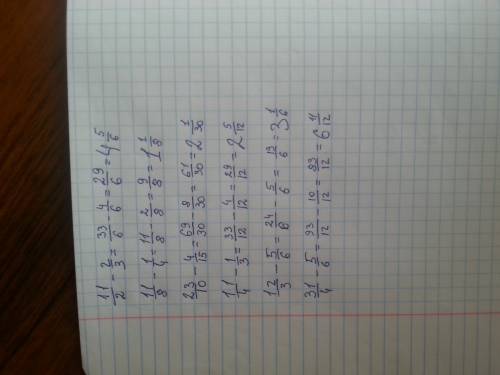 11/2 - 2/3 = 33/6 - 4/6 = 29/6 = 4 5/6
11/8 - 1/4 = 11/8 - 2/8 = 9/8 = 1 1/8
23/10 - 4/15 = 69/30 - 8/30 = 61/30 = 2 1/30
11/4 - 1/3 = 33/12 - 4/12 = 29/12 = 2 5/12
12/3 - 5/6 = 24/6 - 5/6 = 19/6 = 3 1/6
31/4 - 5/6 = 93/12 - 10/12 = 83/12 = 6 11/12